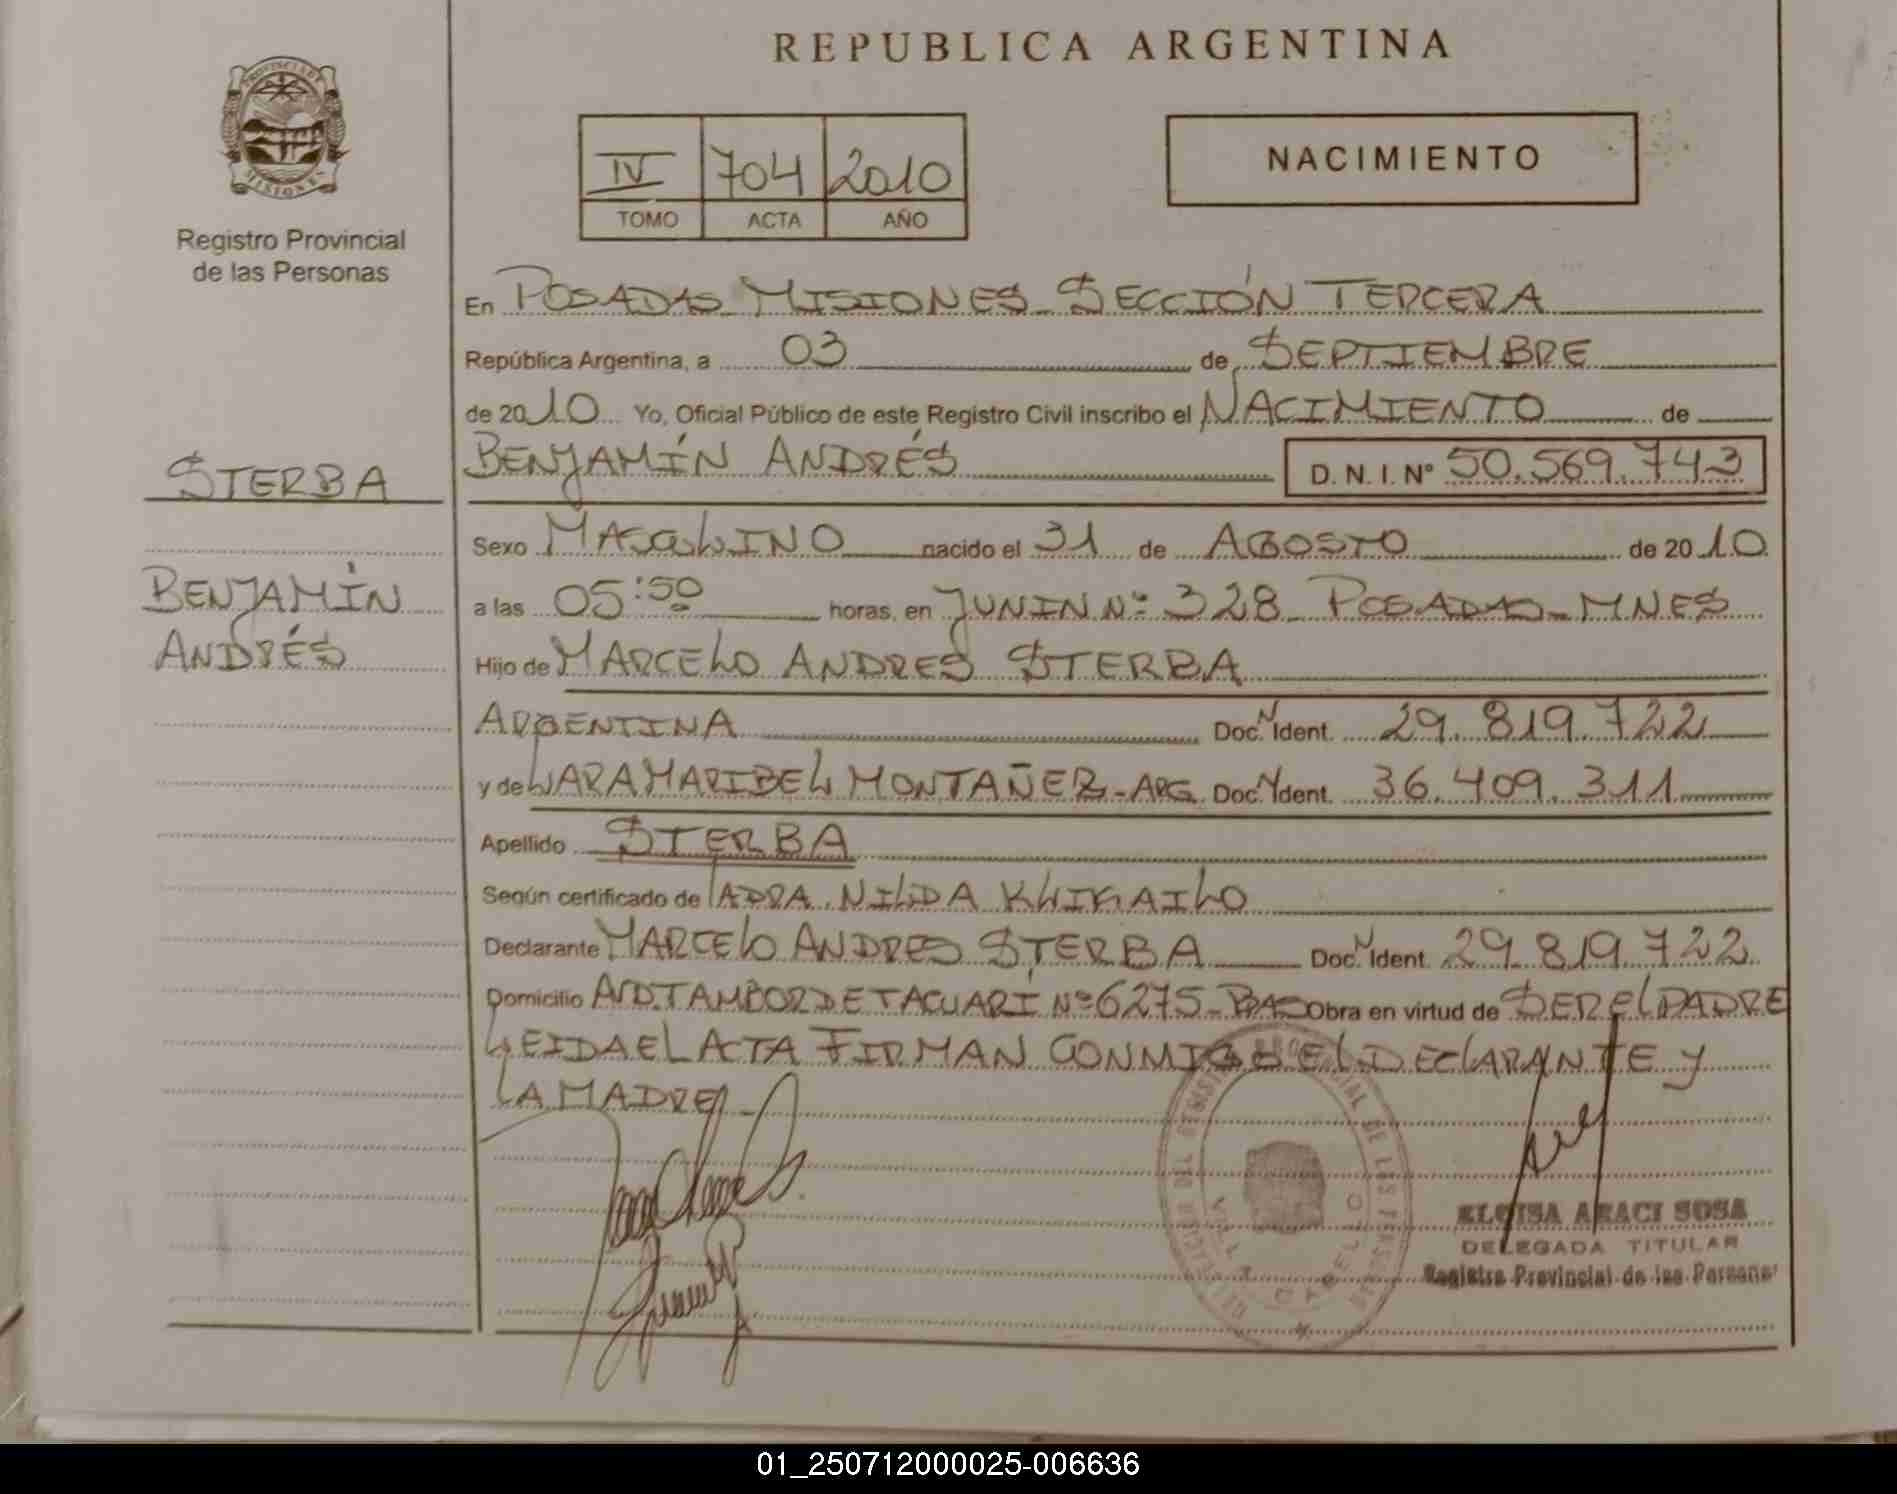 REPUBLICA ARGENTINA
PROVINCIA DE
MISIONES
Registro Provincial
de las Personas
IV 704 2010
TOMO ACTA AÑO
NACIMIENTO
En POSADAS MISIONES - SECCIÓN TERCERA
República Argentina, a 03 de SEPTIEMBRE
de 2010 Yo, Oficial Público de este Registro Civil inscribo el NACIMIENTO de
BENJAMÍN ANDRÉS D. N. I. Nº 50.569.743
STERBA
BENJAMÍN
ANDRÉS
Sexo MASCULINO nacido el 31 de AGOSTO de 2010
a las 05:50 horas, en JUNIN Nº 328 - POSADAS - MNES
Hijo de MARCELO ANDRES STERBA
ARGENTINA Doc. N Ident. 29.819.722
y de LARA MARIBEL MONTAÑEZ - ARG. Doc. N Ident. 36.409.311
Apellido STERBA
Según certificado de LA DRA. NILDA KLIKAILO
Declarante MARCELO ANDRES STERBA Doc. N Ident. 29.819.722
Domicilio AVD. TAMBOR DE TACUARÍ Nº 6275 - PDAS Obra en virtud de SER EL PADRE
LEIDA EL ACTA FIRMAN CONMIGO EL DECLARANTE Y
LA MADRE -
VILLA CABELLO
ELOISA ARACI SOSA
DELEGADA TITULAR
Registro Provincial de las Personas
01_250712000025-006636